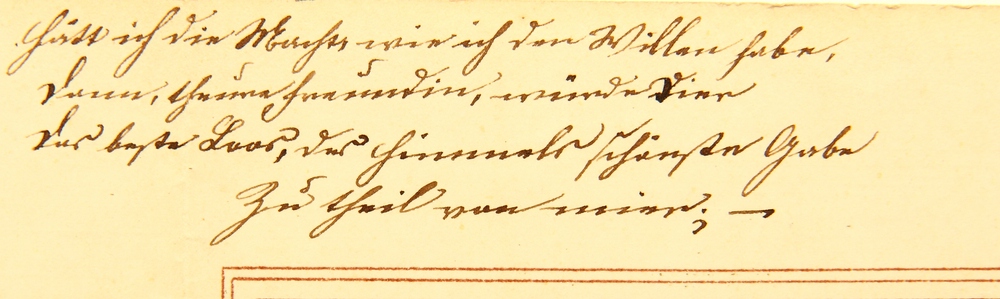 Hätt ich die Macht, wie ich den Willen habe,
Dann, theure Freundin, würde Dier
Das beste Loos, des Himmels schönste Gabe
Zu theil von mier; —